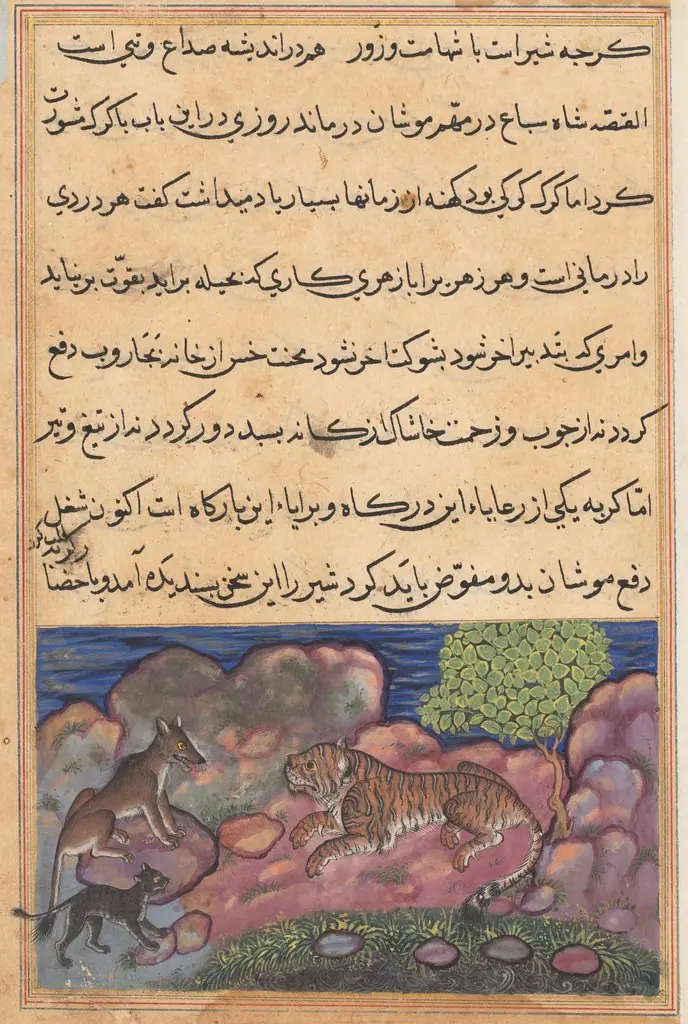 کرجه شیر است با شهامت وزور هم در اندیشه صداع وتبی است
القصه شاه سباع در مهّم موشان در ماند روزی در این باب با کرک مشورت
کرد اما کرک کرکی بود کهنه از زمانها بسیار یاد میداشت کفت هر دردی
را درمانی است و هر زهر برا بازهری کاری که بحیله براید بقوّت برنیاید
وامری که بتدبیر اخر شود بشوکت اخر نشود محنت خس از خانه بجاروب دفع
کردد نه از جوب و زحمت خاشاک از کانه بسبد دور کردد نه از تیغ وتیر
امّا کربه یکی از رعایاء این درکاه و برایاء این بارکاه است اکنون شغل
دفع موشان بدو مفوّض باید کرد شیر را این سخن بسندیده آمد و باحضا
ر کربه